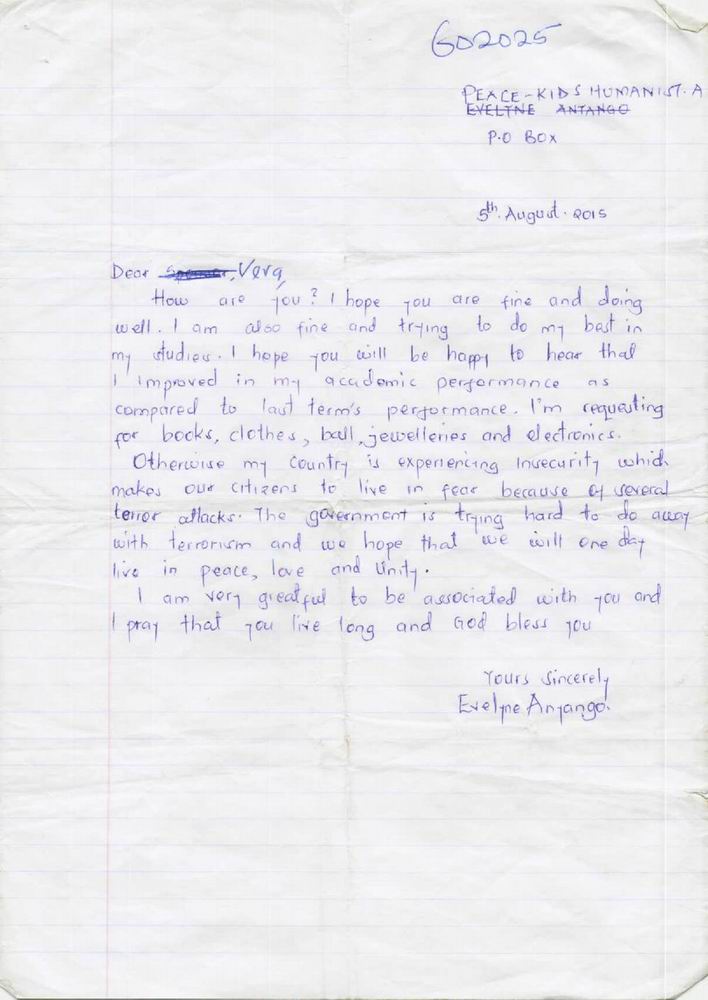 GD2025
PEACE-KIDS HUMANIST. A
EVELTNE ANTANGO
P.O BOX
5th. August. 2015
Dear Vera,
How are you? I hope you are fine and doing
well. I am also fine and trying to do my best in
my studies. I hope you will be happy to hear that
I improved in my academic performance as
compared to last term's performance. I'm requesting
for books, clothes, ball, jewelleries and electronics.
Otherwise my country is experiencing insecurity which
makes our citizens to live in fear because of several
terror attacks. The government is trying hard to do away
with terrorism and we hope that we will one day
live in peace, love and Unity.
I am very greatful to be associated with you and
I pray that you live long and God bless you
Yours Sincerely
Evelyne Anyango.